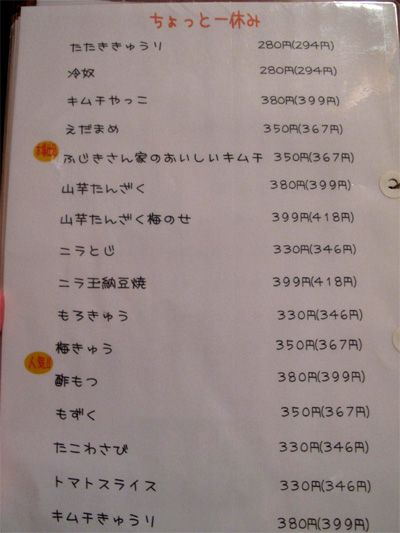 ちょっと一休み
たたききゅうり 280円(294円)
冷奴 280円(294円)
キムチやっこ 380円(399円)
えだまめ 350円(367円)
ふじきさん家のおいしいキムチ 350円(367円)
山芋たんざく 380円(399円)
山芋たんざく梅のせ 399円(418円)
ニラとじ 330円(346円)
ニラ玉納豆焼 399円(418円)
もろきゅう 330円(346円)
梅きゅう 350円(367円)
人気!!
酢もつ 380円(399円)
もずく 350円(367円)
たこわさび 330円(346円)
トマトスライス 330円(346円)
キムチきゅうり 380円(399円)